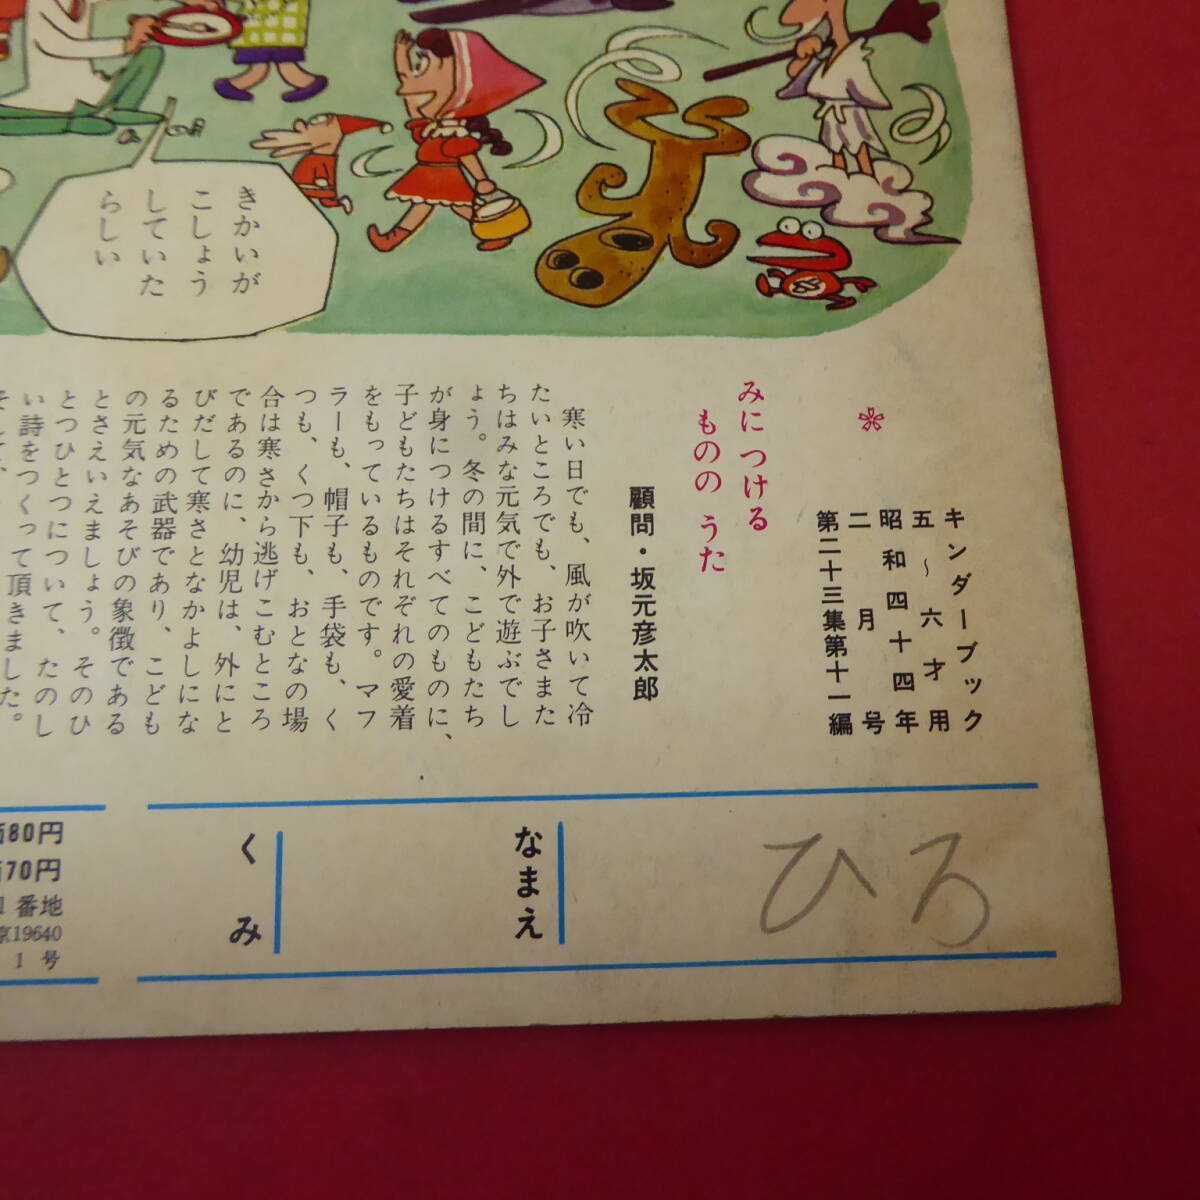 きかいが
こしょう
していた
らしい
キンダーブック
五～六才用
昭和四十四年
二月号
第二十三集第十一編
みにつける
もののうた
顧問・坂元彦太郎
寒い日でも、風が吹いて冷
たいところでも、お子さまた
ちはみな元気で外で遊ぶでし
ょう。冬の間に、こどもたち
が身につけるすべてのものに、
子どもたちはそれぞれの愛着
をもっているものです。マフ
ラーも、帽子も、手袋も、く
つも、くつ下も、おとなの場
合は寒さから逃げこむところ
であるのに、幼児は、外にと
びだして寒さとなかよしにな
るための武器であり、こども
の元気なあそびの象徴である
とさえいえましょう。そのひ
とつひとつについて、たのし
い詩をつくって頂きました。
そして、
なまえ
ひろ
くみ
80円
70円
1番地
京19640
1号